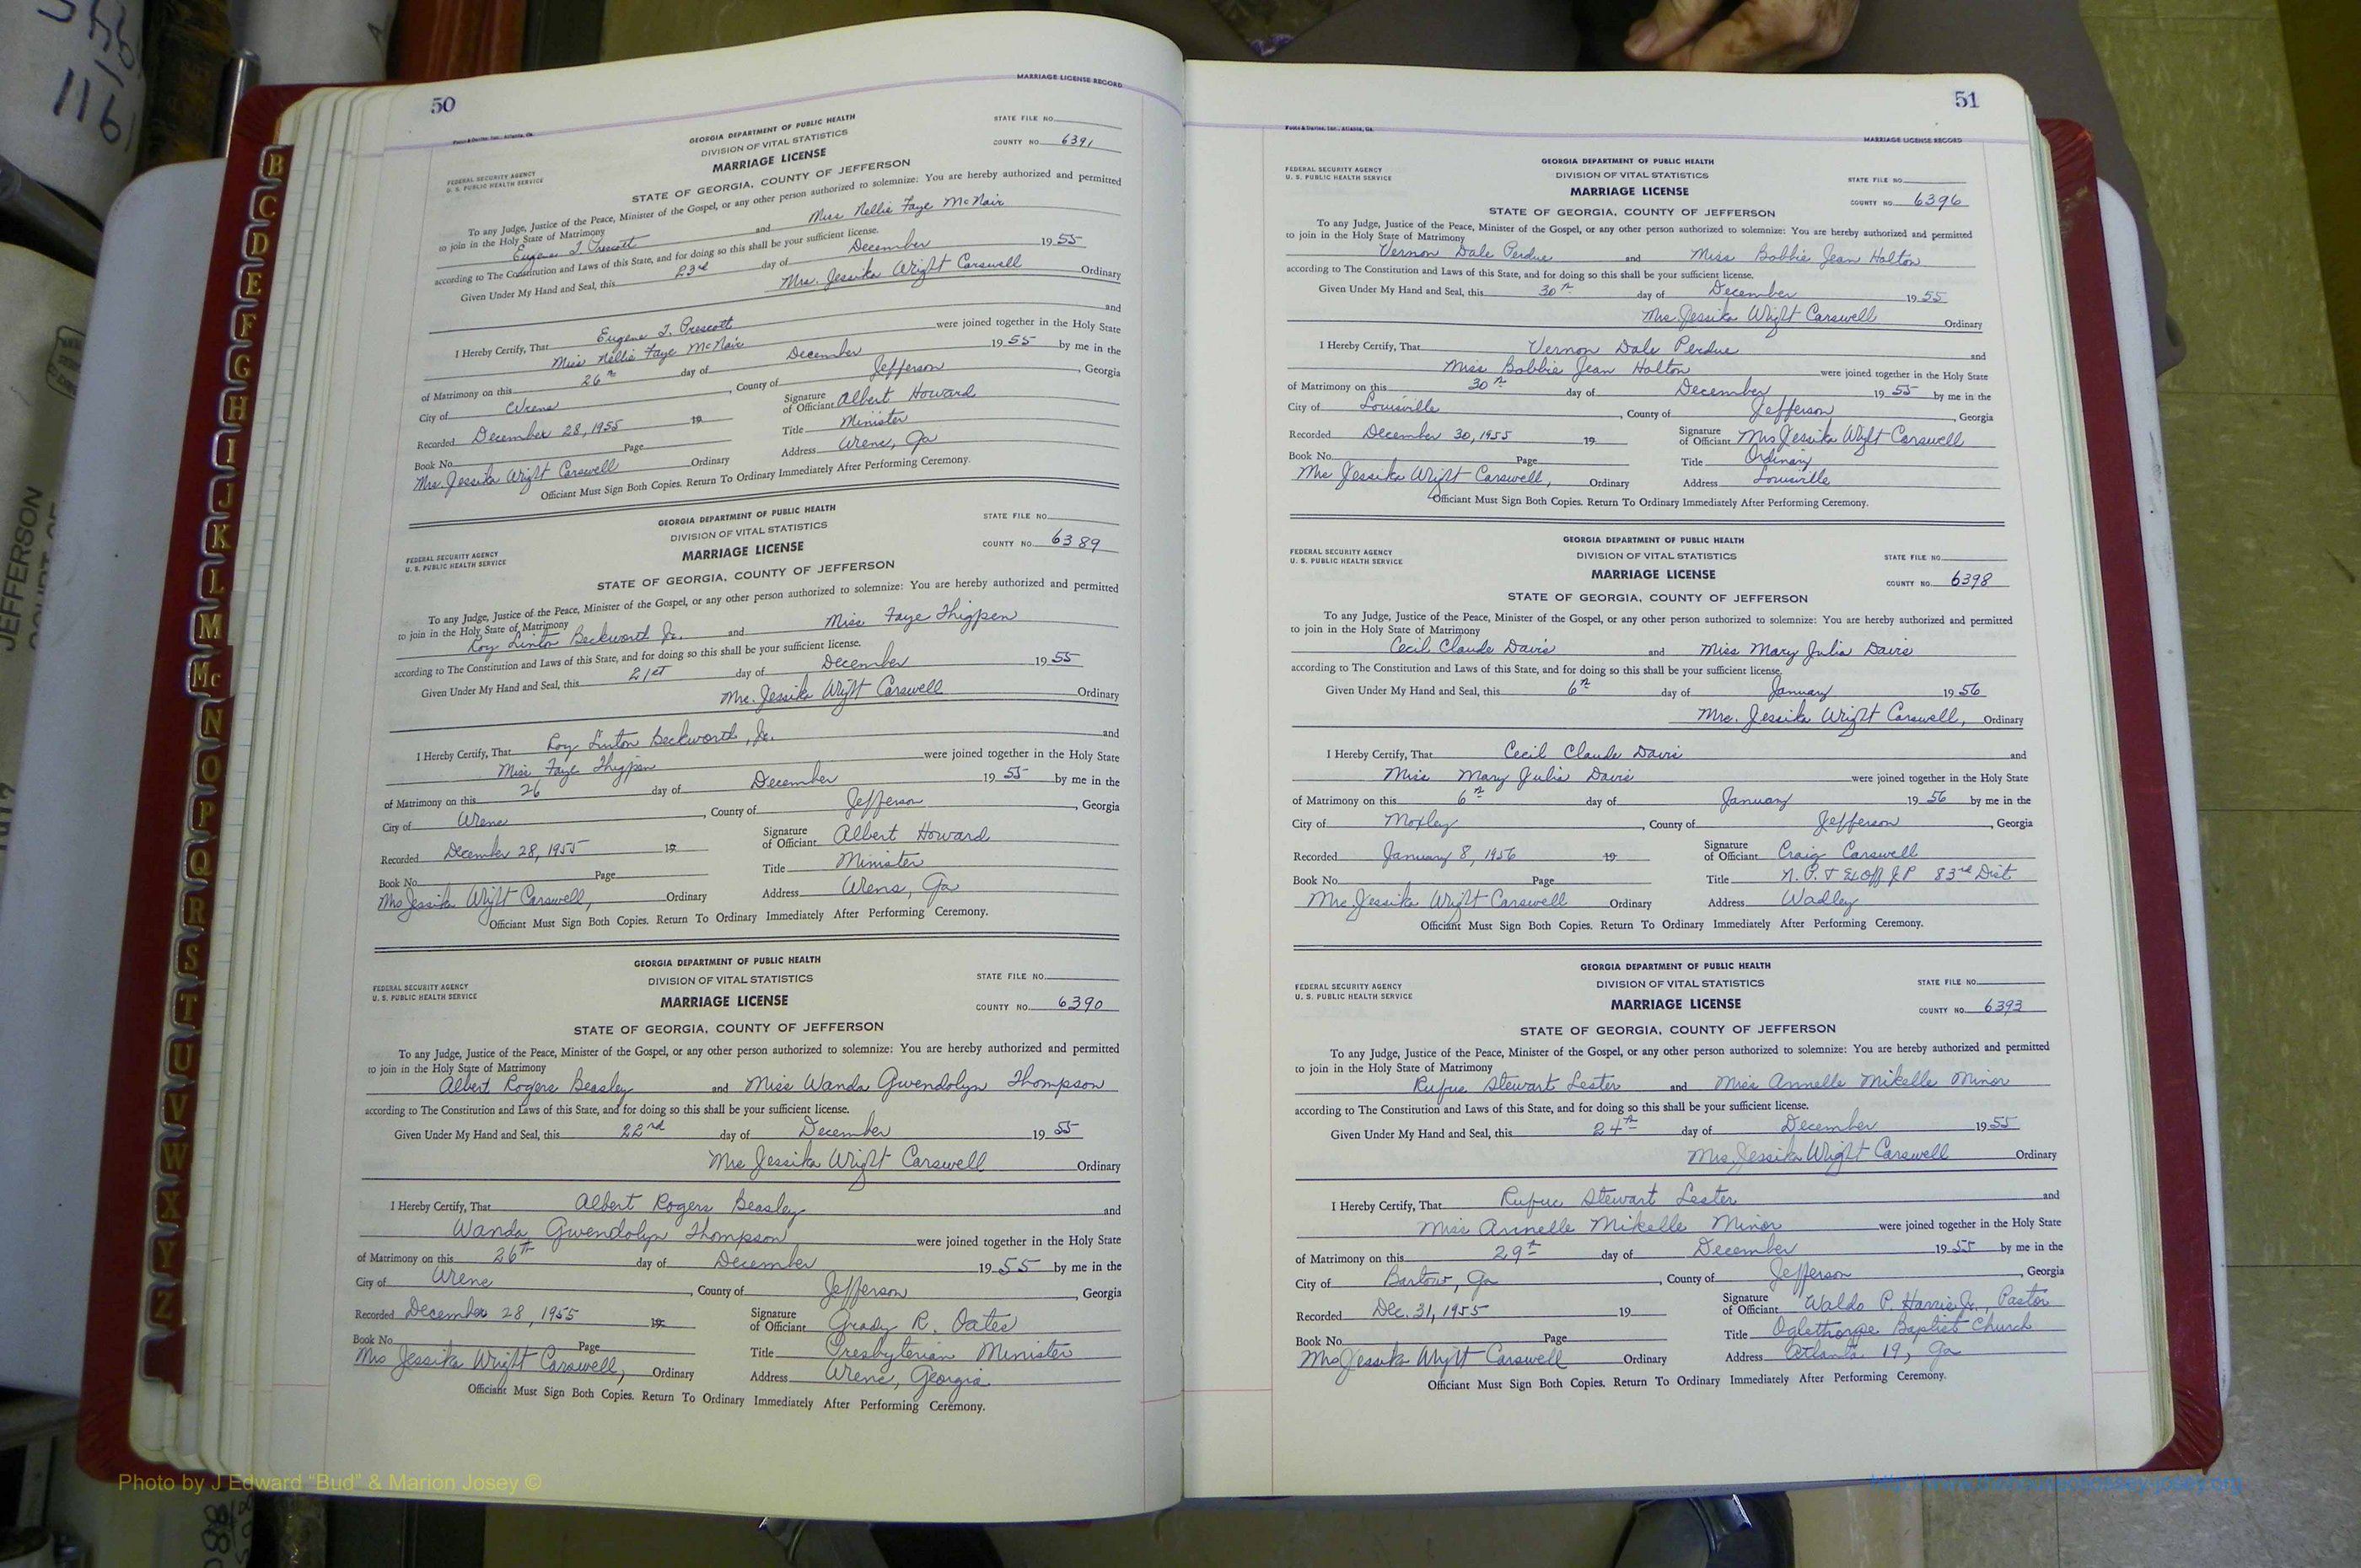 50
MARRIAGE LICENSE RECORD
Foote & Davies, Inc., Atlanta, Ga.
GEORGIA DEPARTMENT OF PUBLIC HEALTH
DIVISION OF VITAL STATISTICS
MARRIAGE LICENSE
STATE FILE NO.
COUNTY NO. 6391
FEDERAL SECURITY AGENCY
U. S. PUBLIC HEALTH SERVICE
STATE OF GEORGIA, COUNTY OF JEFFERSON
To any Judge, Justice of the Peace, Minister of the Gospel, or any other person authorized to solemnize: You are hereby authorized and permitted
to join in the Holy State of Matrimony
Eugene T. Prescott and Miss Nellie Faye McNair
according to The Constitution and Laws of this State, and for doing so this shall be your sufficient license.
Given Under My Hand and Seal, this 23rd day of December 1955
Mrs. Jessika Wright Carswell Ordinary
I Hereby Certify, That Eugene T. Prescott and
Miss Nellie Faye McNair were joined together in the Holy State
of Matrimony on this 26th day of December 1955 by me in the
City of Wrens, County of Jefferson, Georgia
Recorded December 28, 1955 19
Signature of Officiant Albert Howard
Book No. Page
Title Minister
Mrs. Jessika Wright Carswell Ordinary
Address Wrens, Ga
Officiant Must Sign Both Copies. Return To Ordinary Immediately After Performing Ceremony.
GEORGIA DEPARTMENT OF PUBLIC HEALTH
DIVISION OF VITAL STATISTICS
MARRIAGE LICENSE
STATE FILE NO.
COUNTY NO. 6389
FEDERAL SECURITY AGENCY
U. S. PUBLIC HEALTH SERVICE
STATE OF GEORGIA, COUNTY OF JEFFERSON
To any Judge, Justice of the Peace, Minister of the Gospel, or any other person authorized to solemnize: You are hereby authorized and permitted
to join in the Holy State of Matrimony
Roy Linton Beckworth Jr. and Miss Faye Thigpen
according to The Constitution and Laws of this State, and for doing so this shall be your sufficient license.
Given Under My Hand and Seal, this 21st day of December 1955
Mrs. Jessika Wright Carswell Ordinary
I Hereby Certify, That Roy Linton Beckworth, Jr. and
Miss Faye Thigpen were joined together in the Holy State
of Matrimony on this 26 day of December 1955 by me in the
City of Wrens, County of Jefferson, Georgia
Recorded December 28, 1955 19
Signature of Officiant Albert Howard
Book No. Page
Title Minister
Mrs Jessika Wright Carswell, Ordinary
Address Wrens, Ga
Officiant Must Sign Both Copies. Return To Ordinary Immediately After Performing Ceremony.
GEORGIA DEPARTMENT OF PUBLIC HEALTH
DIVISION OF VITAL STATISTICS
MARRIAGE LICENSE
STATE FILE NO.
COUNTY NO. 6390
FEDERAL SECURITY AGENCY
U. S. PUBLIC HEALTH SERVICE
STATE OF GEORGIA, COUNTY OF JEFFERSON
To any Judge, Justice of the Peace, Minister of the Gospel, or any other person authorized to solemnize: You are hereby authorized and permitted
to join in the Holy State of Matrimony
Albert Rogers Beasley and Miss Wanda Gwendolyn Thompson
according to The Constitution and Laws of this State, and for doing so this shall be your sufficient license.
Given Under My Hand and Seal, this 22nd day of December 1955
Mrs Jessika Wright Carswell Ordinary
I Hereby Certify, That Albert Rogers Beasley and
Wanda Gwendolyn Thompson were joined together in the Holy State
of Matrimony on this 26th day of December 1955 by me in the
City of Wrens, County of Jefferson, Georgia
Recorded December 28, 1955 19
Signature of Officiant Grady R. Oates
Book No. Page
Title Presbyterian Minister
Mrs Jessika Wright Carswell, Ordinary
Address Wrens, Georgia
Officiant Must Sign Both Copies. Return To Ordinary Immediately After Performing Ceremony.
51
MARRIAGE LICENSE RECORD
Foote & Davies, Inc., Atlanta, Ga.
GEORGIA DEPARTMENT OF PUBLIC HEALTH
DIVISION OF VITAL STATISTICS
MARRIAGE LICENSE
STATE FILE NO.
COUNTY NO. 6396
FEDERAL SECURITY AGENCY
U. S. PUBLIC HEALTH SERVICE
STATE OF GEORGIA, COUNTY OF JEFFERSON
To any Judge, Justice of the Peace, Minister of the Gospel, or any other person authorized to solemnize: You are hereby authorized and permitted
to join in the Holy State of Matrimony
Vernon Dale Perdue and Miss Bobbie Jean Halton
according to The Constitution and Laws of this State, and for doing so this shall be your sufficient license.
Given Under My Hand and Seal, this 30th day of December 1955
Mrs. Jessika Wright Carswell Ordinary
I Hereby Certify, That Vernon Dale Perdue and
Miss Bobbie Jean Halton were joined together in the Holy State
of Matrimony on this 30th day of December 1955 by me in the
City of Louisville, County of Jefferson, Georgia
Recorded December 30, 1955 19
Signature of Officiant Mrs Jessika Wright Carswell
Book No. Page
Title Ordinary
Mrs Jessika Wright Carswell, Ordinary
Address Louisville
Officiant Must Sign Both Copies. Return To Ordinary Immediately After Performing Ceremony.
GEORGIA DEPARTMENT OF PUBLIC HEALTH
DIVISION OF VITAL STATISTICS
MARRIAGE LICENSE
STATE FILE NO.
COUNTY NO. 6398
FEDERAL SECURITY AGENCY
U. S. PUBLIC HEALTH SERVICE
STATE OF GEORGIA, COUNTY OF JEFFERSON
To any Judge, Justice of the Peace, Minister of the Gospel, or any other person authorized to solemnize: You are hereby authorized and permitted
to join in the Holy State of Matrimony
Cecil Claude Davis and Miss Mary Julia Davis
according to The Constitution and Laws of this State, and for doing so this shall be your sufficient license.
Given Under My Hand and Seal, this 6th day of January 1956
Mrs. Jessika Wright Carswell, Ordinary
I Hereby Certify, That Cecil Claude Davis and
Miss Mary Julia Davis were joined together in the Holy State
of Matrimony on this 6th day of January 1956 by me in the
City of Moxley, County of Jefferson, Georgia
Recorded January 8, 1956 19
Signature of Officiant Craig Carswell
Book No. Page
Title N. P. & Ex Off J P 83rd Dist
Mrs. Jessika Wright Carswell Ordinary
Address Wadley
Officiant Must Sign Both Copies. Return To Ordinary Immediately After Performing Ceremony.
GEORGIA DEPARTMENT OF PUBLIC HEALTH
DIVISION OF VITAL STATISTICS
MARRIAGE LICENSE
STATE FILE NO.
COUNTY NO. 6393
FEDERAL SECURITY AGENCY
U. S. PUBLIC HEALTH SERVICE
STATE OF GEORGIA, COUNTY OF JEFFERSON
To any Judge, Justice of the Peace, Minister of the Gospel, or any other person authorized to solemnize: You are hereby authorized and permitted
to join in the Holy State of Matrimony
Rufus Stewart Lester and Miss Annelle Mikelle Minor
according to The Constitution and Laws of this State, and for doing so this shall be your sufficient license.
Given Under My Hand and Seal, this 24th day of December 1955
Mrs. Jessika Wright Carswell Ordinary
I Hereby Certify, That Rufus Stewart Lester and
Miss Annelle Mikelle Minor were joined together in the Holy State
of Matrimony on this 29th day of December 1955 by me in the
City of Bartow, Ga, County of Jefferson, Georgia
Recorded Dec. 31, 1955 19
Signature of Officiant Waldo P. Harris Jr., Pastor
Book No. Page
Title Oglethorpe Baptist Church
Mrs Jessika Wright Carswell Ordinary
Address Atlanta 19, Ga
Officiant Must Sign Both Copies. Return To Ordinary Immediately After Performing Ceremony.
B
C
D
E
F
G
H
I
J
K
L
M
Mc
N
O
P
Q
R
S
T
U
V
W
X
Y
Z
116
JEFFERSON
Photo by J Edward “Bud” & Marion Josey ©